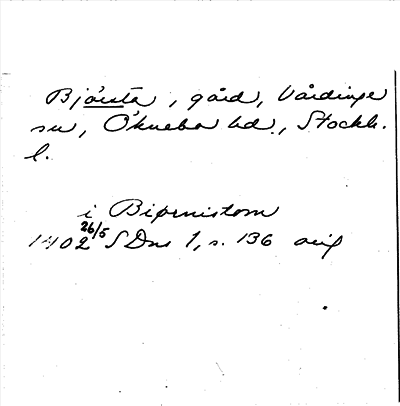 Bjärsta, gård, Vårdinge
sn, Öknebo hd., Stockh.
l.
i Biærnistom
1402 26/5 SDns 1, s. 136 orig